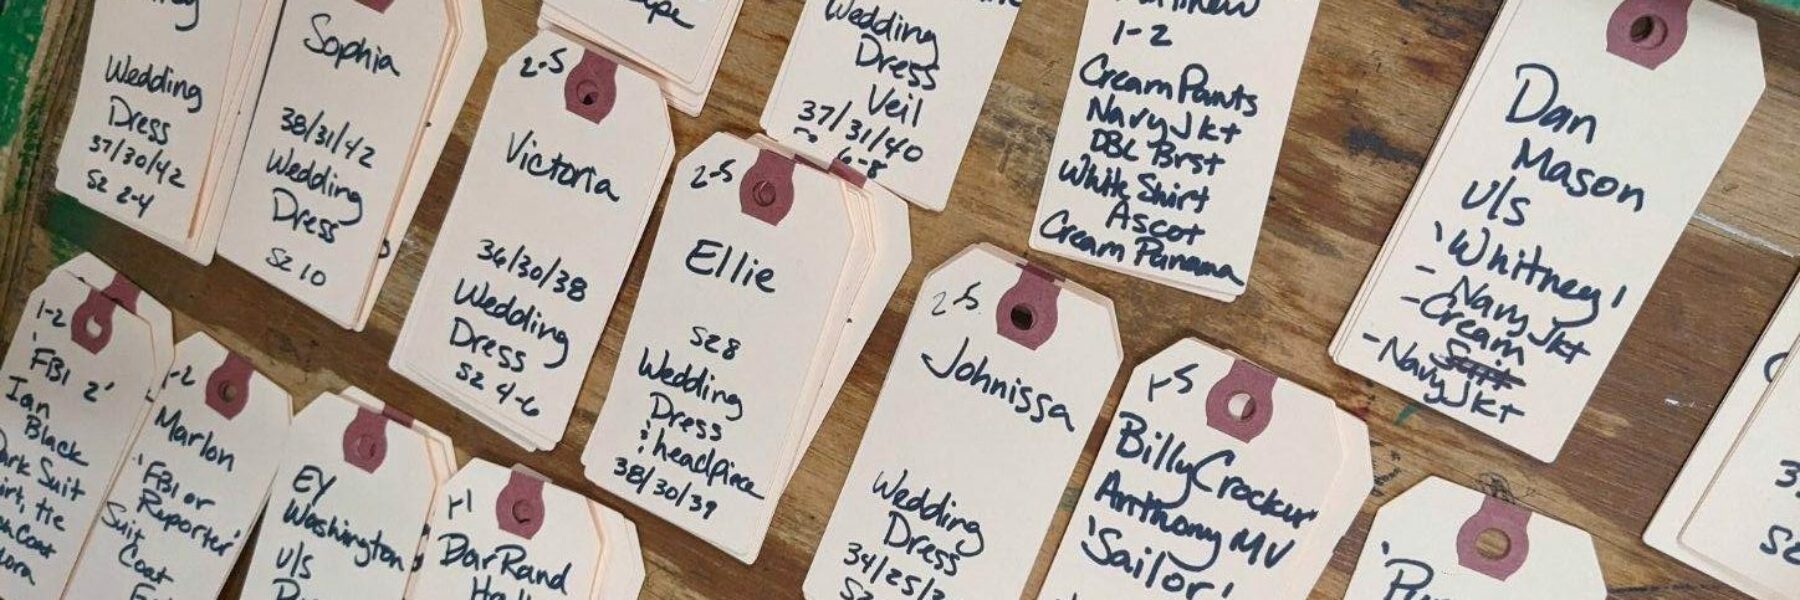 Wedding
Dress
37/30/42
sz 2-4
Sophia
38/31/42
Wedding
Dress
sz 10
2-5
Victoria
36/30/38
Wedding
Dress
sz 4-6
2-5
Ellie
sz 8
Wedding
Dress
& headpiece
38/30/39
Wedding
Dress
Veil
37/31/40
6-8
1-2
Cream Pants
Navy Jkt
DBL Brst
White Shirt
Ascot
Cream Panama
Dan
Mason
u/s
'Whitney'
- Navy Jkt
- Cream
Suit
- Navy Jkt
1-2
'FBI 2'
Ian
Black
Dark Suit
tie
Marlon
'FBI or
Reporter'
Suit
Coat
EY
Washington
u/s
Dar Rand
2-5
Johnissa
Wedding
Dress
34/25/3
sz
1-5
Billy Crocker
Anthony MV
'Sailor'